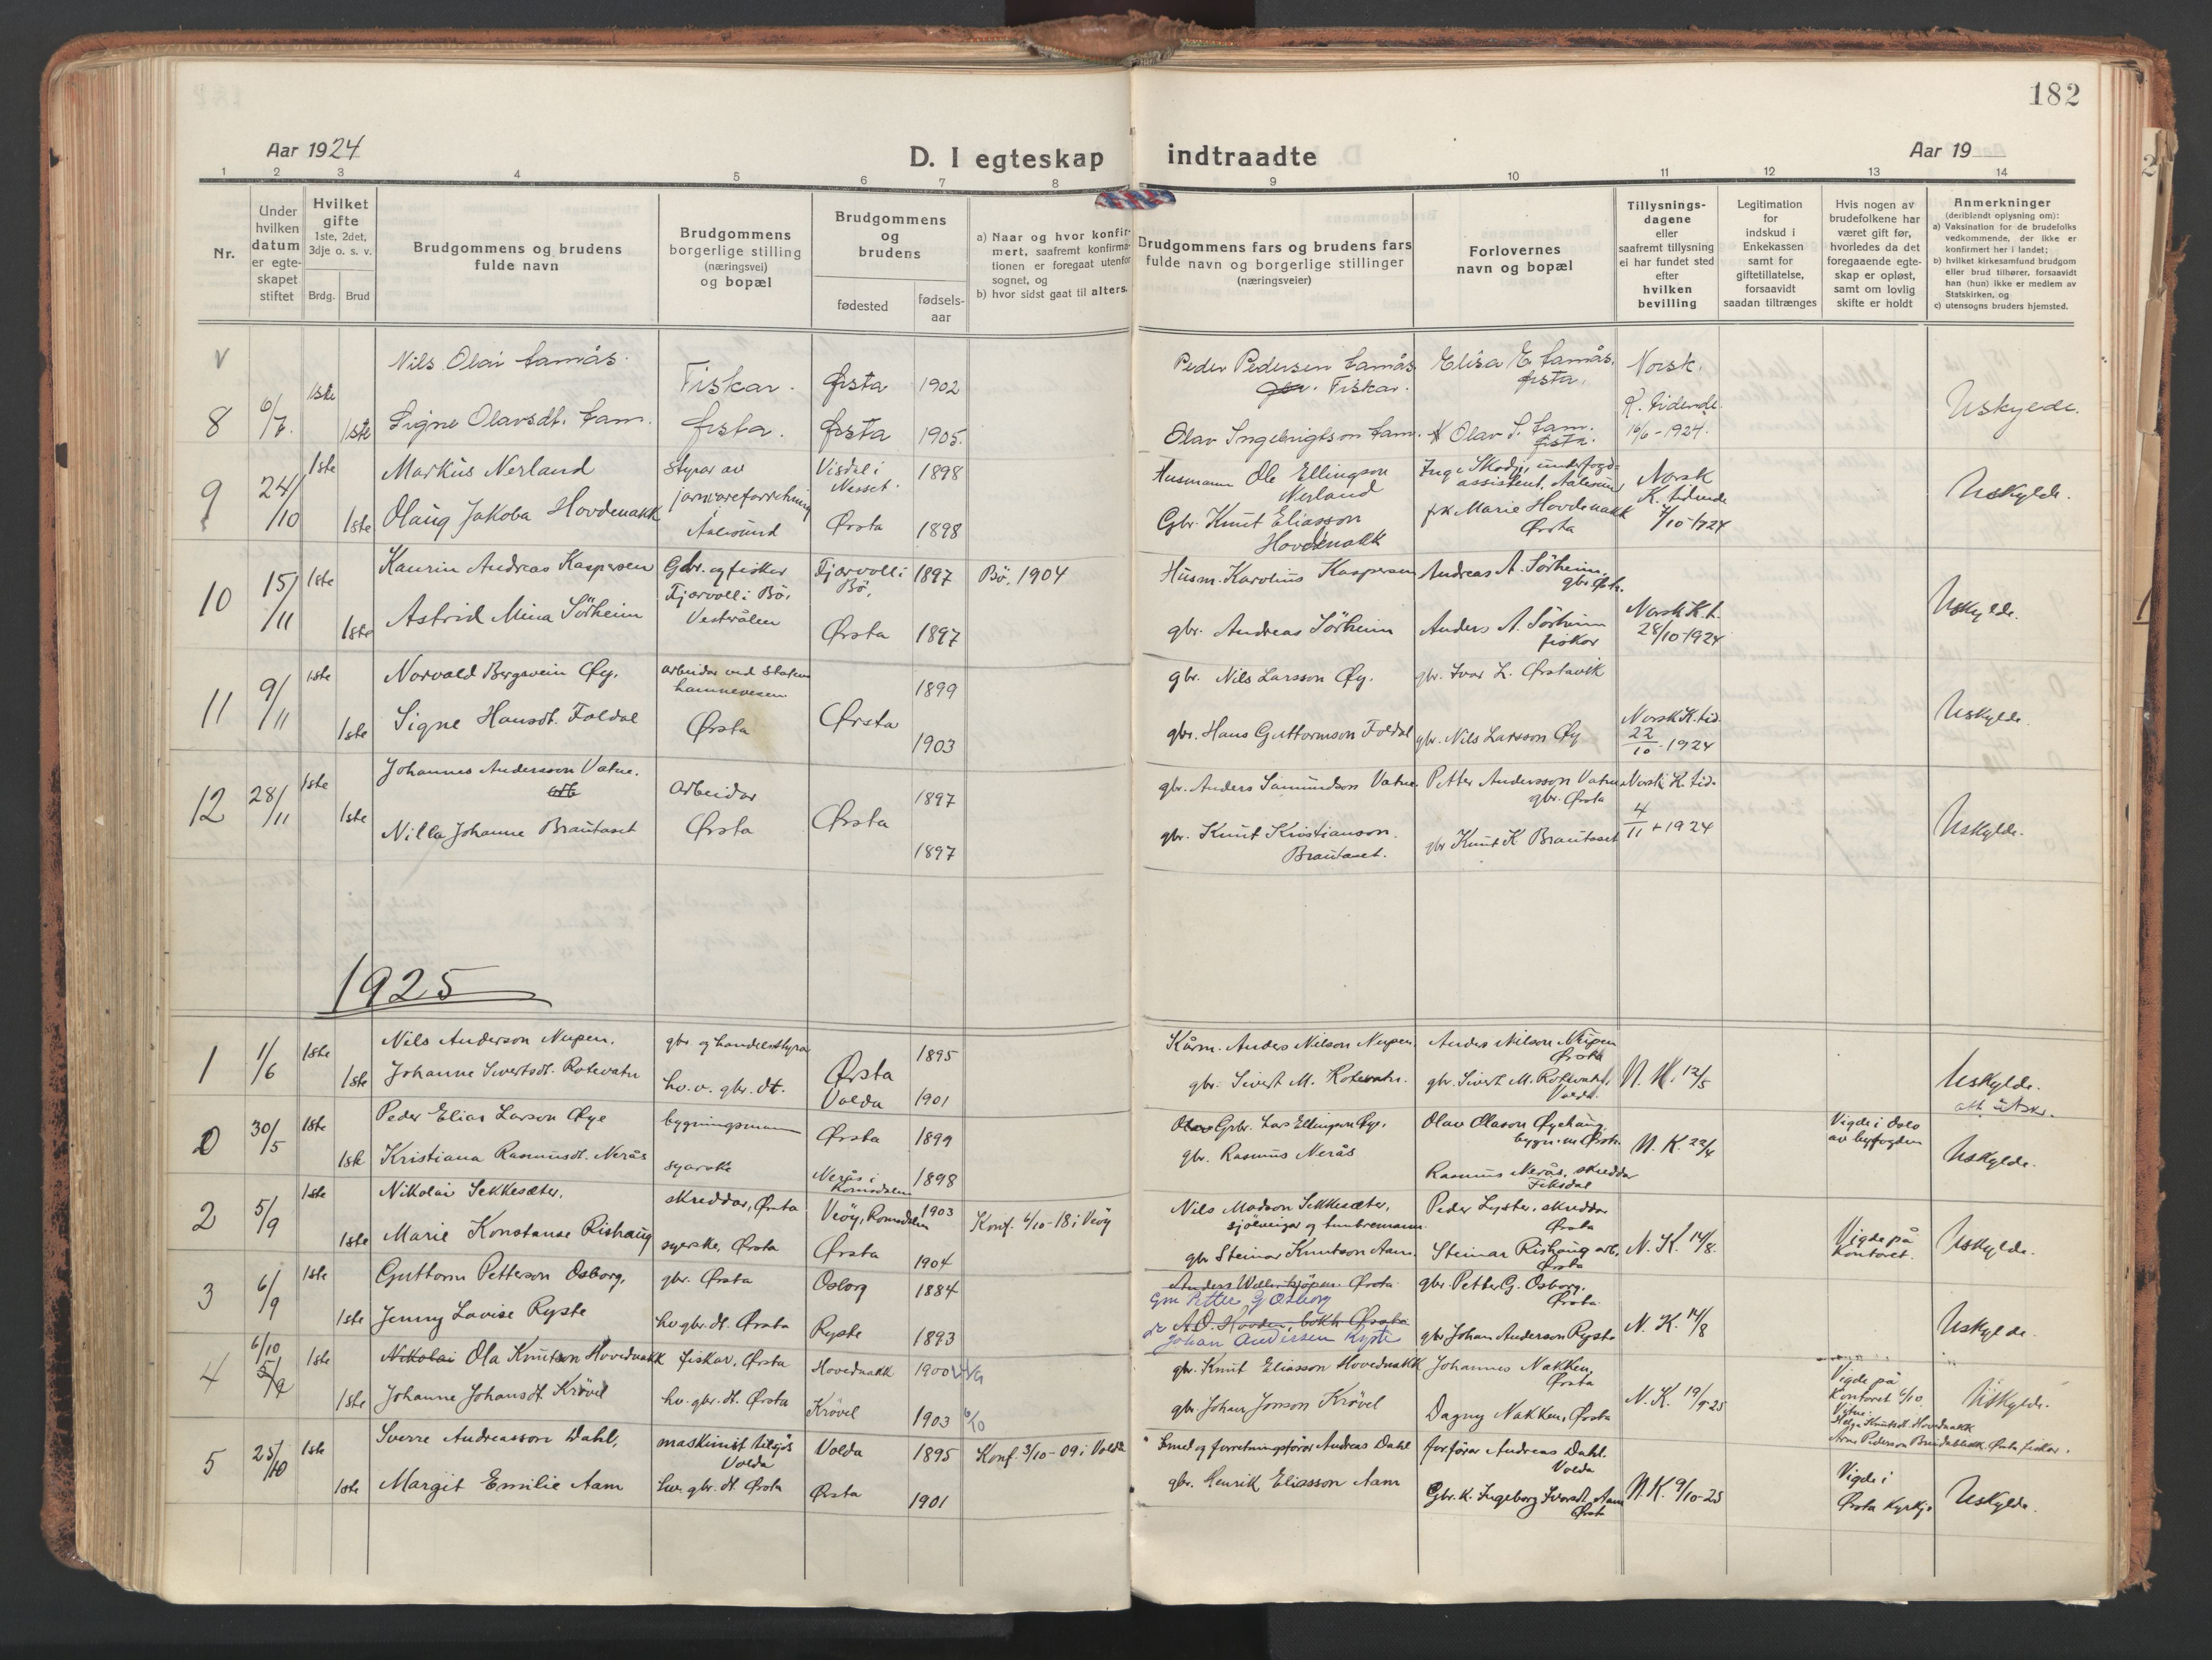 182
Aar 1924
D. I egteskap indtraadte
Aar 19
1 2 3 4 5 6 7 8 9 10 11 12 13 14
Nr.
Under hvilken datum er egteskapet stiftet
Hvilket gifte 1ste, 2det, 3dje o. s. v.
Brdg. Brud
Brudgommens og brudens fulde navn
Brudgommens borgerlige stilling (næringsvei) og bopæl
Brudgommens og brudens
fødested
fødsels-aar
a) Naar og hvor konfir-
mert, saafremt konfirma-
tionen er foregaat utenfor
sognet, og
b) hvor sidst gaat til alters.
Brudgommens fars og brudens fars
fulde navn og borgerlige stillinger
(næringsveier)
Forlovernes
navn og bopæl
Tillysnings-
dagene
eller
saafremt tillysning
ei har fundet sted
efter
hvilken
bevilling
Legitimation
for
indskud i
Enkekassen
samt for
giftetillatelse,
forsaavidt
saadan tiltrænges
Hvis nogen av
brudefolkene har
været gift før,
hvorledes da det
foregaaende egte-
skap er opløst,
samt om lovlig
skifte er holdt
Anmerkninger
(deriblandt oplysning om):
a) Vaksination for de brudefolks
vedkommende, der ikke er
konfirmert her i landet;
b) hvilket kirkesamfund brudgom
eller brud tilhører, forsaavidt
han (hun) ikke er medlem av
Statskirken, og
c) utensogns bruders hjemsted.
8 6/7. 1ste Nils Olai Fiskar. Ørsta 1902 Peder Pedersen Fiskar. Elisa E. Ørsta. Norsk.
1ste Signe Olavsdt. Aam. Ørsta. Ørsta 1905. Olav Ingebrigtson Aam. Olav I. Aam. Ørsta. K. tidende 16/6-1924. Uskylde.
9 24/10 1ste Markus Nerland Styrar av jarnvareforretning Visdal i Nesset. 1898 Husmann Ole Ellingson Nerland Inge Skodje, underfogd-assistent, Aalesund Norsk K. tidende 7/10-1924 Uskylde.
1ste Olaug Jakoba Hovdenakk Aalesund Ørsta 1898 Gbr. Knut Eliasson Hovdenakk frk Marie Hovdenakk Ørsta
10 15/11 1ste Kaurin Andreas Kaspersen Gbr. og fisker Fjærvoll i Bø, Vesterålen Fjærvoll i Bø. 1897 Bø. 1904 Husm. Karolius Kaspersen Andreas A. Sörheim, gbr. Ørsta.
1ste Astrid Mina Sörheim Ørsta 1897 gbr. Andreas Sörheim Anders A. Sörheim fiskar Norsk K. t. 28/10-1924 Uskylde.
11 9/11 1ste Norvald Bergsvein Øy. arbeidar ved Statens hamnevesen 1899 gbr. Nils Larsson Øy. gbr. Ivar L. Ørstavik
1ste Signe Hansdt. Foldal Ørsta Ørsta 1903 gbr. Hans Guttormson Foldal gbr. Nils Larsson Øy Norsk K. tid. 22/10-1924 Uskylde.
12 28/11 1ste Johannes Andersson Vatne. Arbeidar 1897 gbr. Anders Samundson Vatne. Petter Andersson Vatne gbr. Ørsta Norsk K. tid. 4/11-1924
1ste Nilla Johanne Brautaset Ørsta Ørsta 1897 gbr. Knut Kristianson Brautaset. gbr Knut K Brautaset Uskylde.
1925
1 1/6 1ste Nils Anderson Nupen. gbr. og handelsstyrar Ørsta 1895 Kårm. Anders Nilson Nupen. Anders Nilson Nupen Ørsta
1ste Johanne Sivertsdt. Rotevatn hv. v. gbr. dt. Volda 1901 gbr. Sivert M. Rotevatn. gbr. Sivert M. Rotevatn, Volda. N. K. 12/5 Uskylde.
0 30/5 1ste Peder Elias Larson Øye bygningsmann Ørsta 1899 Gbr. Lars Ellingson Øye. Olav Olason Øyehaug. bygn. m. Ørsta N. K. 22/4 Vigde i Oslo av byfogden
1ste Kristiana Rasmusdt. Nerås syarske Nerås i Romsdalen 1898 gbr. Rasmus Nerås Rasmus Nerås, skreddar Fiksdal Uskylde.
2 5/9 1ste Nikolai Sekkesæter, skreddar, Ørsta Veøy, Romsdalen 1903 Konf. 6/10-18 i Veøy Nils Madson Sekkesæter, sjölveigar og tumbremann. Peder Lyster, skreddar Ørsta
1ste Marie Konstanse Rishaug syerske, Ørsta Ørsta 1904 gbr Steinar Knutson Aam. Steinar Rishaug arb. Ørsta N. K. 14/8. Vigde på Kontoret. Uskylde.
3 6/9 1ste Guttorm Petterson Osborg, gbr. Ørsta Osborg 1884 Gm Petter G Osborg gbr Petter G. Osborg. Ørsta.
1ste Jenny Lovise Ryste hv gbr. dt. Ørsta Ryste 1893 Johan Andersen Ryste gbr Johan Anderson Ryste N. K. 14/8 Uskylde.
4 6/10 5/9 1ste Nikolai Ola Knutson Hovdenakk fiskar, Ørsta Hovednakk 1900 gbr. Knut Eliasson Hovednakk Johannes Nakken, Ørsta
1ste Johanne Johansdt. Krövel hv. gbr. dt. Ørsta Krövel 1903 6/10 gbr Johan Jonson Krövel Dagny Nakken, Ørsta N. K. 19/9-25 Vigde på Kontoret 6/10. Vitne: Helga Knutsdt. Hovdenakk Uskylde.
5 25/10 1ste Sverre Andreasson Dahl, maskinist Volda Volda 1895 Konf. 3/10-09 i Volda Smed og forretningsförar Andreas Dahl forförar Andreas Dahl. Volda
1ste Margit Emilie Aam hv. gbr. dt. Ørsta Ørsta 1901 gbr. Henrik Eliasson Aam Gbr. k. Ingeborg Ivarsdt. Aam Ørsta N. K. 9/10-25 Vigde i Ørsta Kyrkje Uskylde.